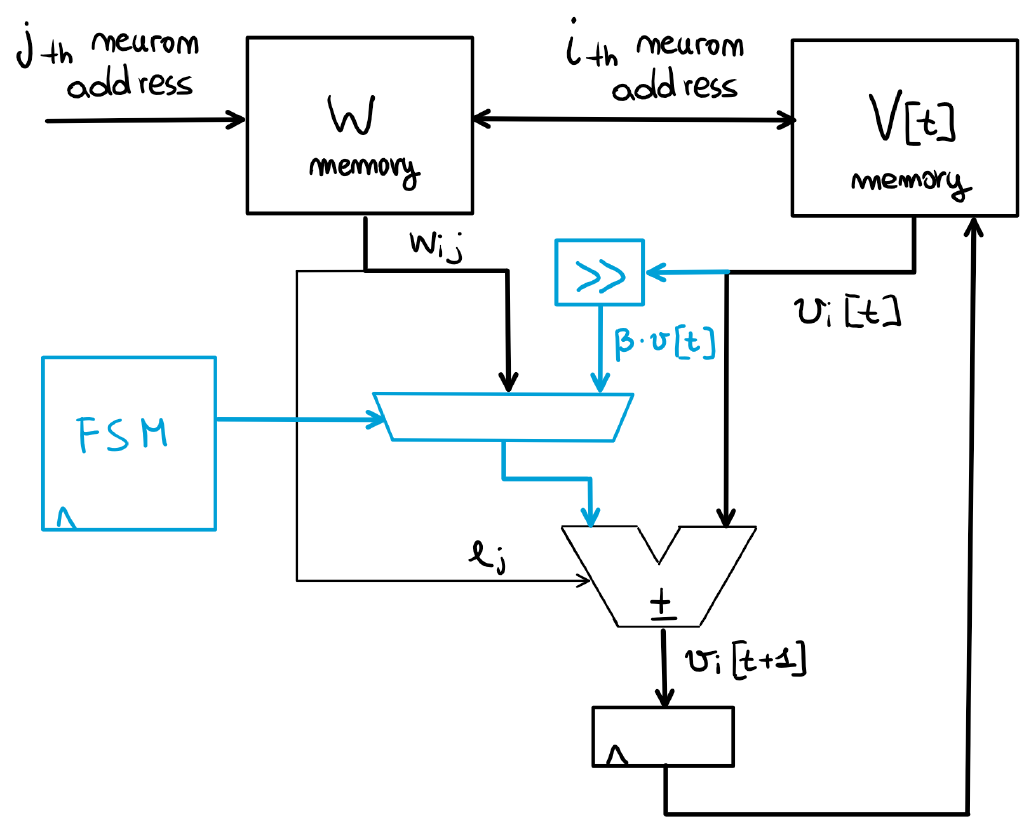 j-th neuron
address
W
memory
i-th neuron
address
V[t]
memory
wij
>>
β·v[t]
vi[t]
FSM
ej
±
vi[t+1]